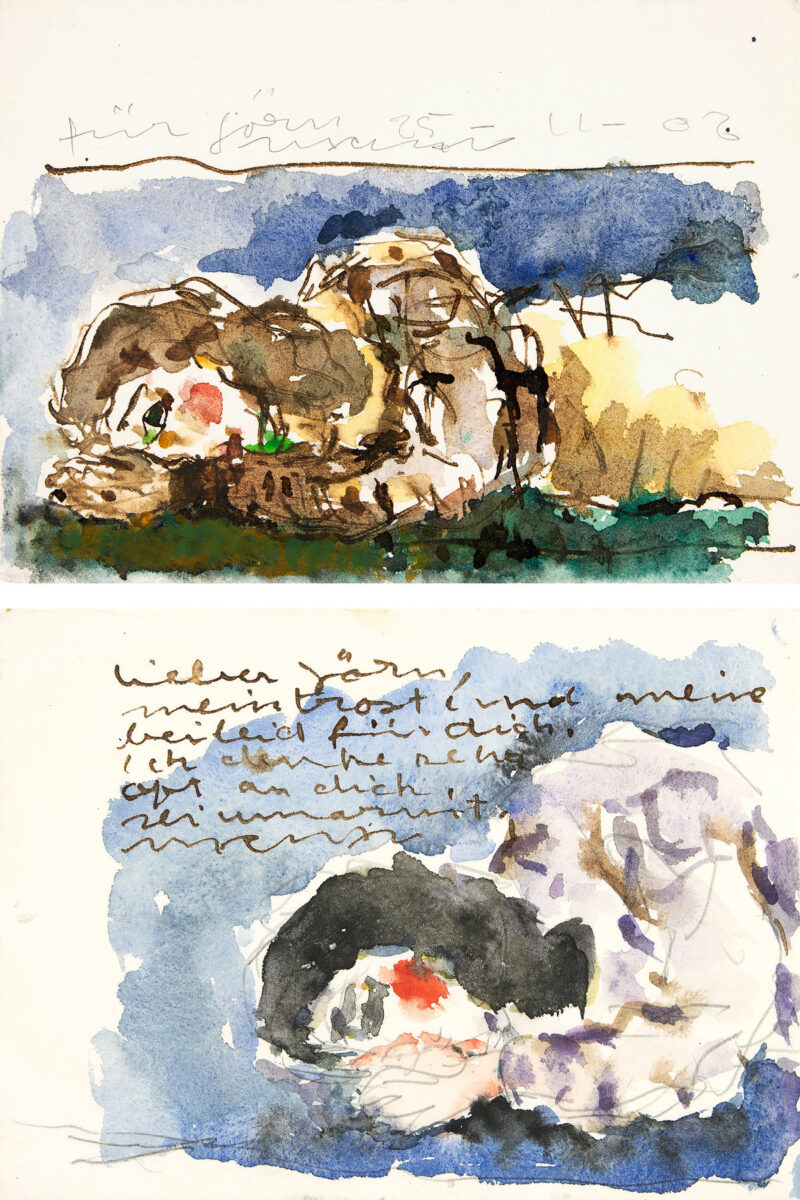 für jörn 25-11-06
lieber jörn,
mein trost und meine
beileid für dich.
ich denke sehr
oft an dich,
sei umarmt.